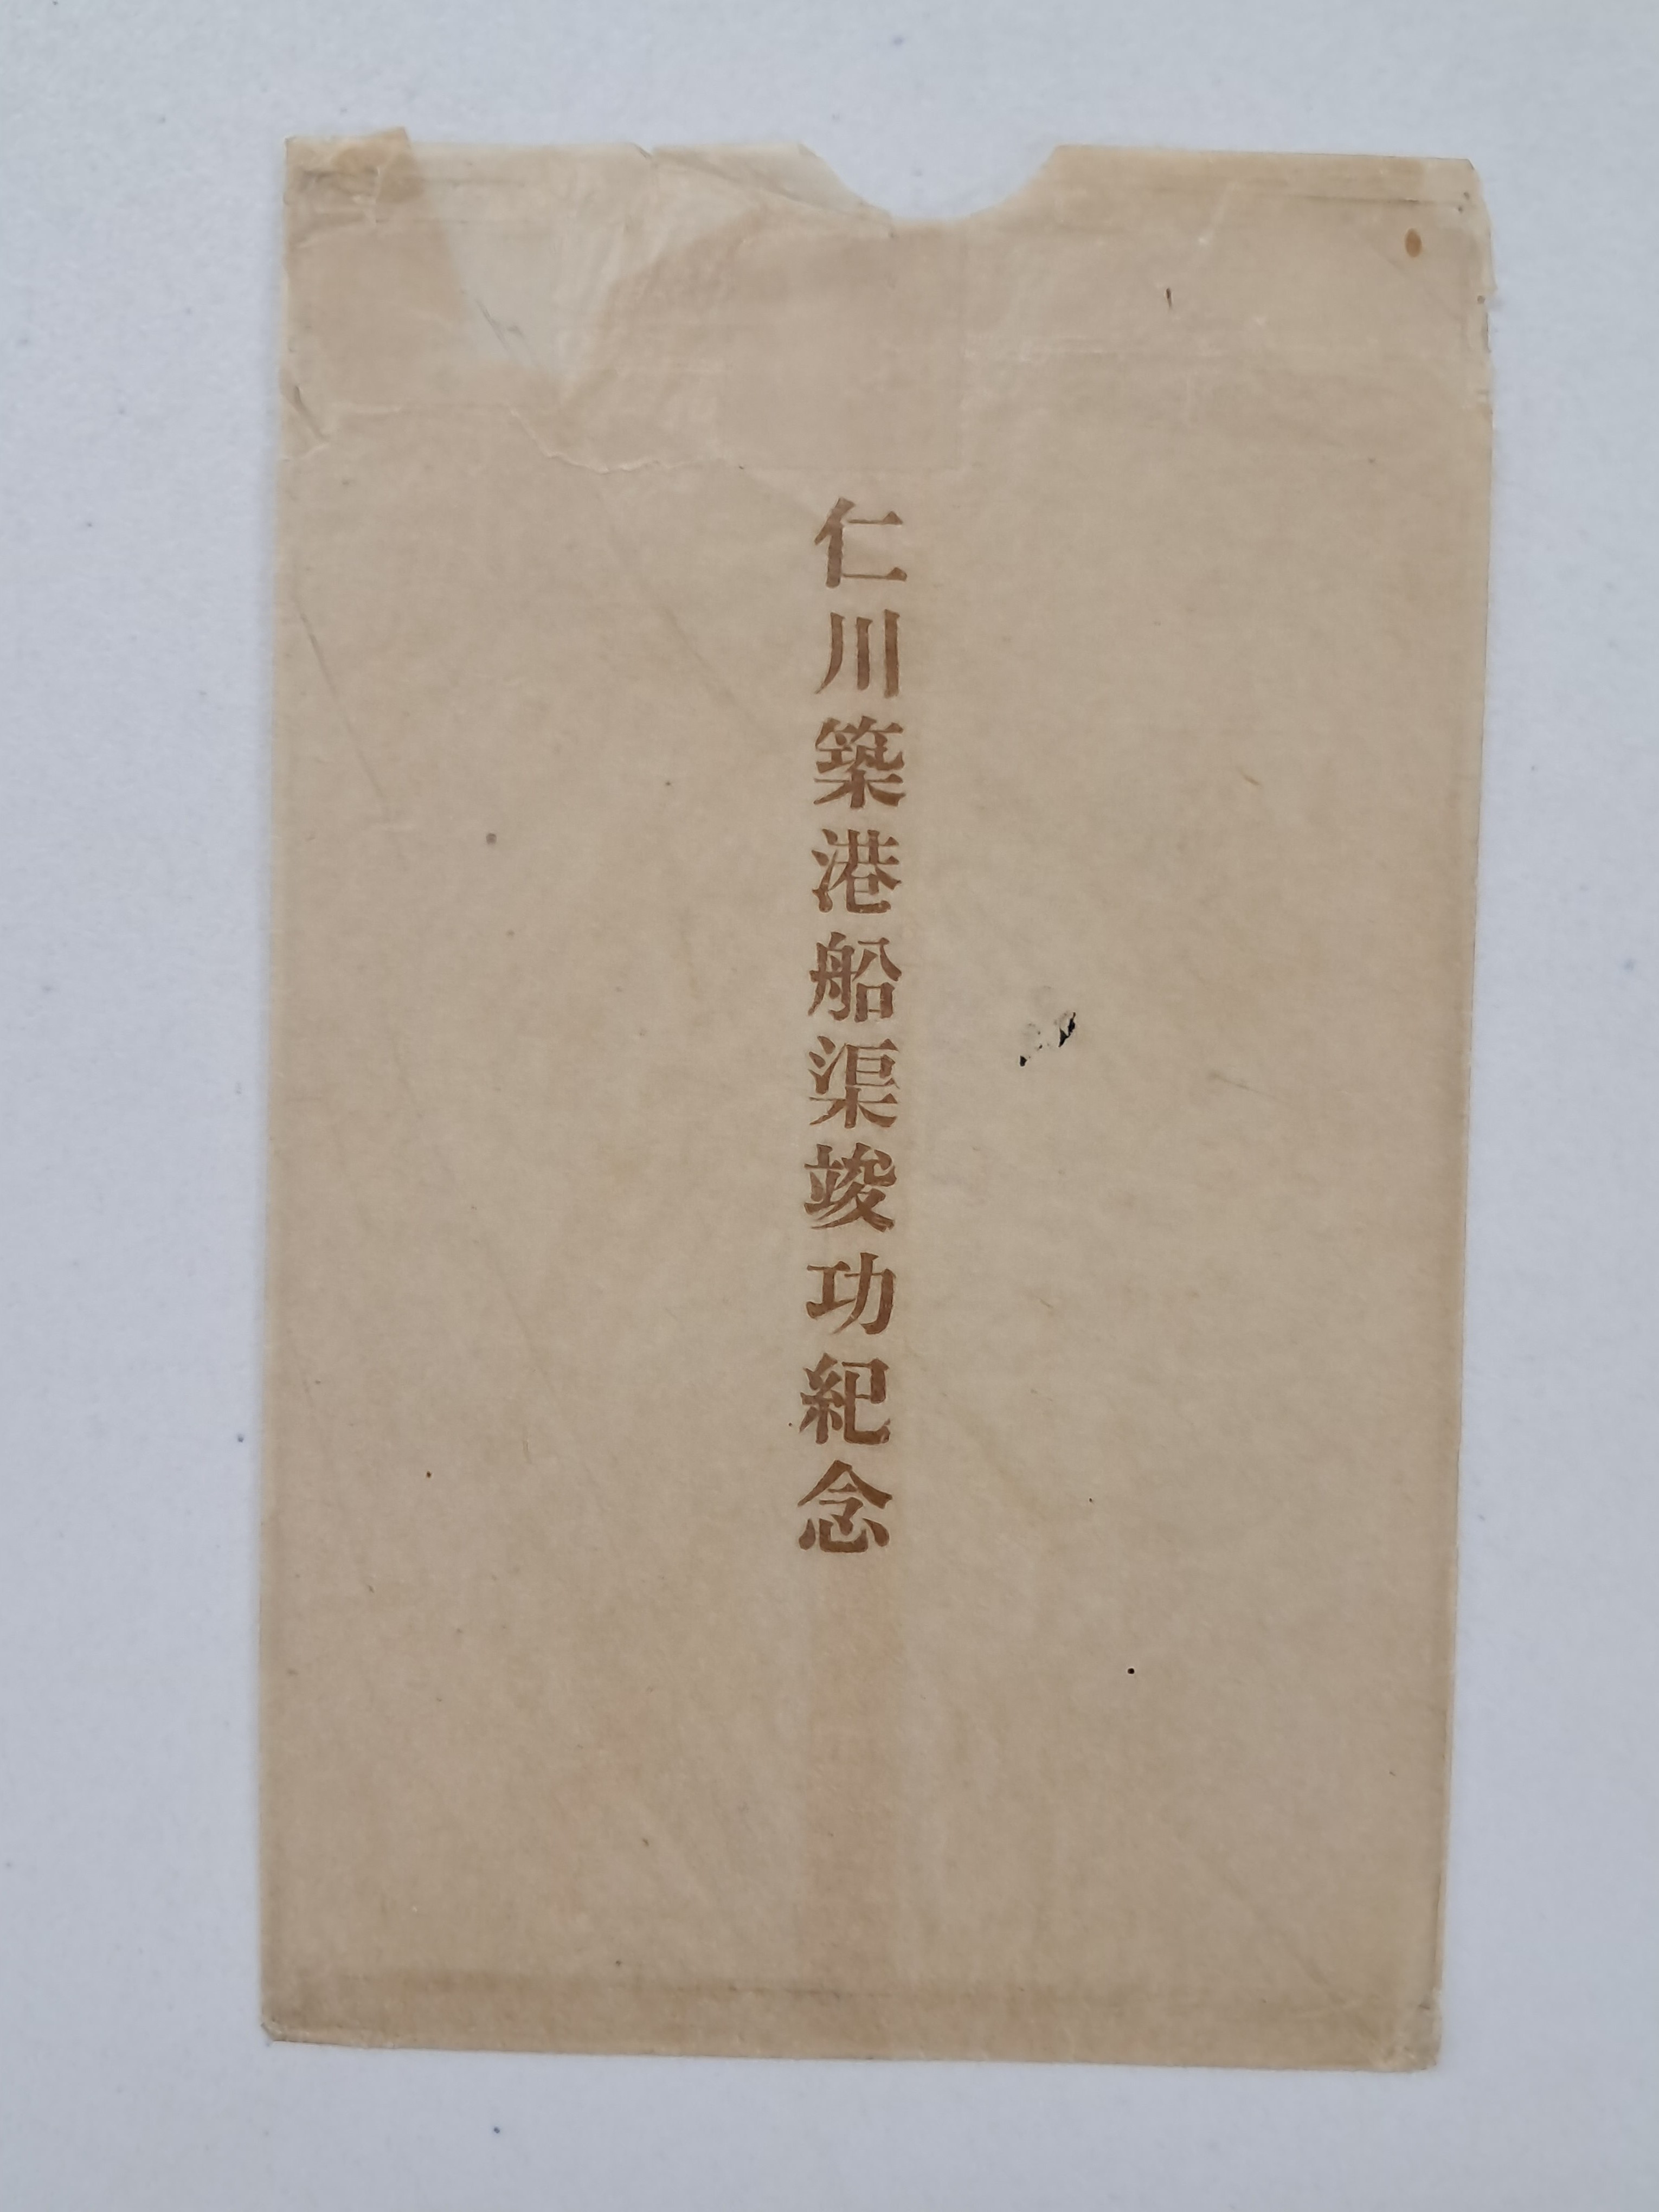 仁川築港船渠竣功紀念